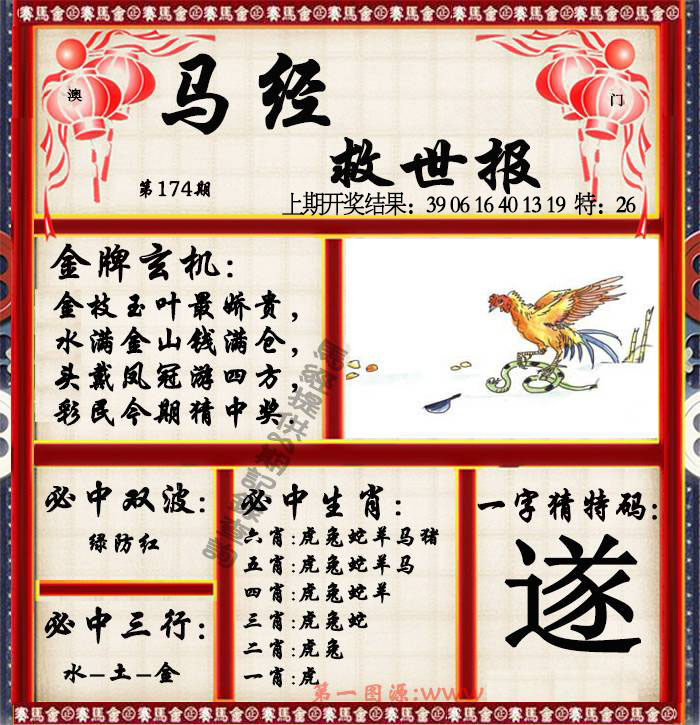 澳
门
马经
救世报
第174期
上期开奖结果：39 06 16 40 13 19 特：26
金牌玄机：
金枝玉叶最娇贵，
水满金山钱满仓，
头戴凤冠游四方，
彩民今期猜中奖．
必中双波：
绿防红
必中三行：
水-土-金
必中生肖：
六肖:虎兔蛇羊马猪
五肖:虎兔蛇羊马
四肖:虎兔蛇羊
三肖:虎兔蛇
二肖:虎兔
一肖:虎
一字猜特码：
遂
第一图源:www